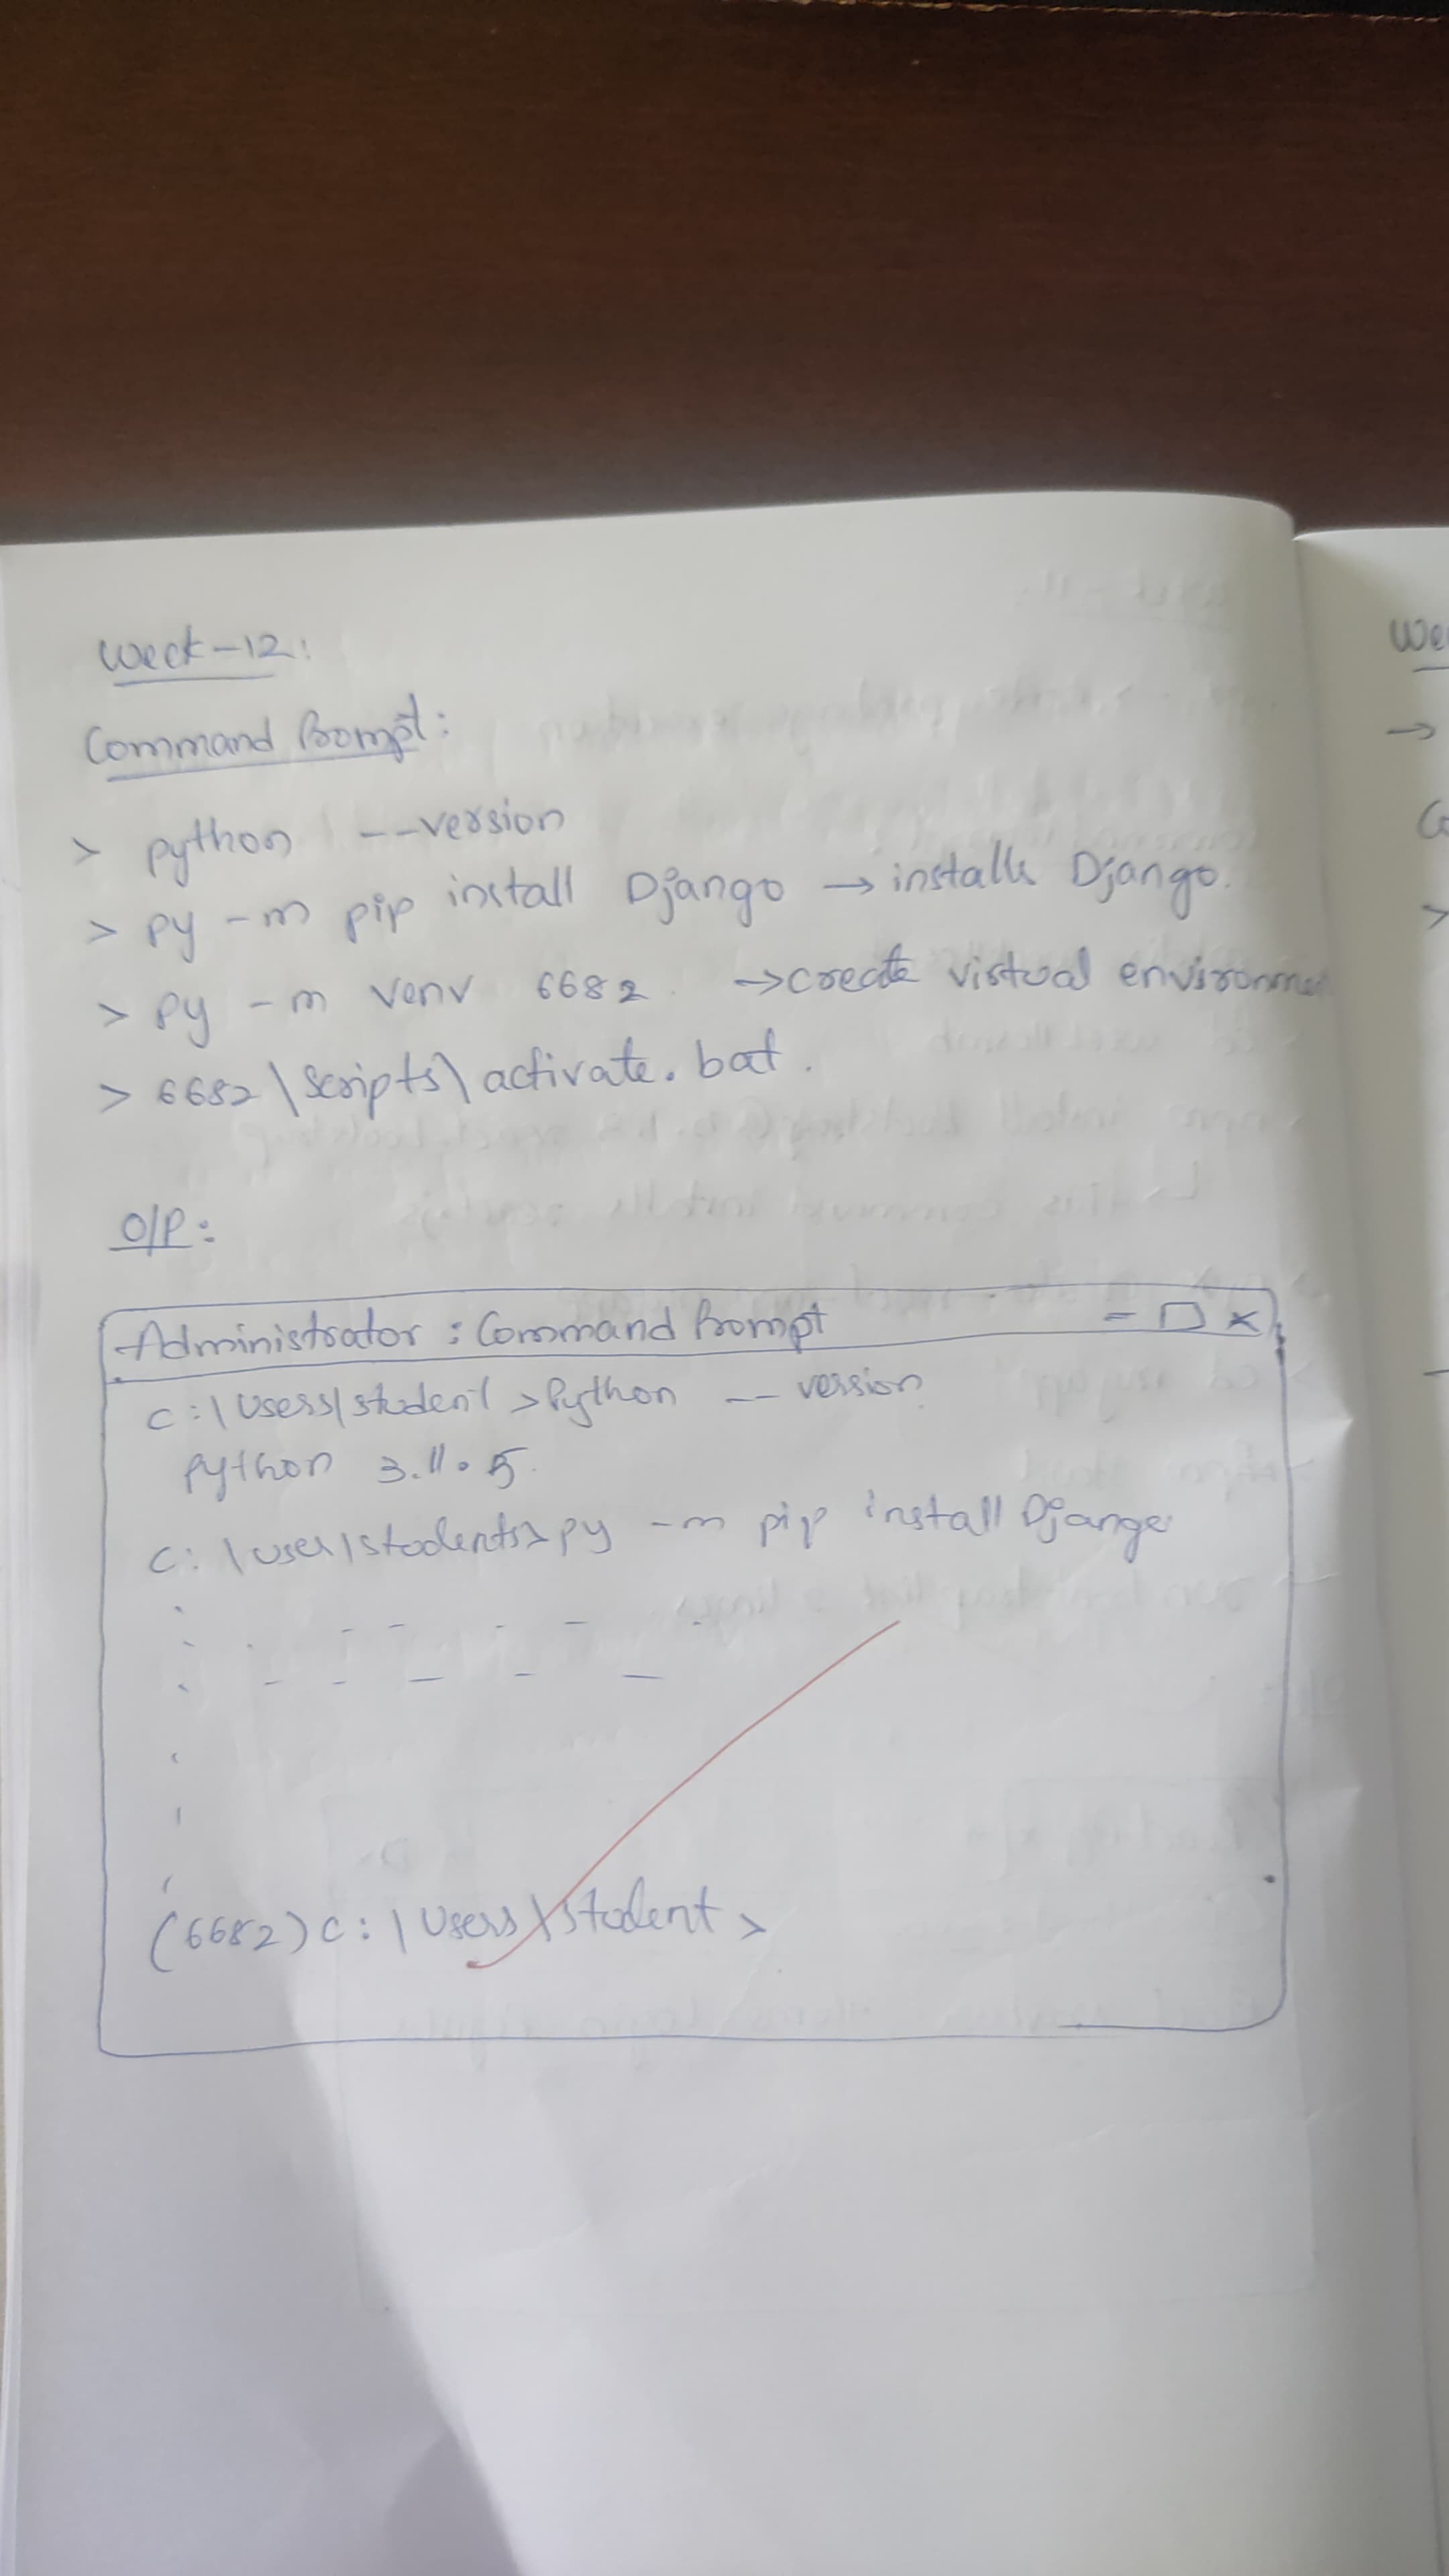 Week-12:
Command Prompt:
> python --version
> py -m pip install Django → installs Django.
> py -m venv 6682 → create virtual environmen
> 6682\Scripts\activate.bat.
O/P:
Administrator : Command Prompt - □ x
C:\Users\student>Python -- version
Python 3.11.5.
C:\user\students>py -m pip install Django
(6682) C:\Users\student>
We
→
>